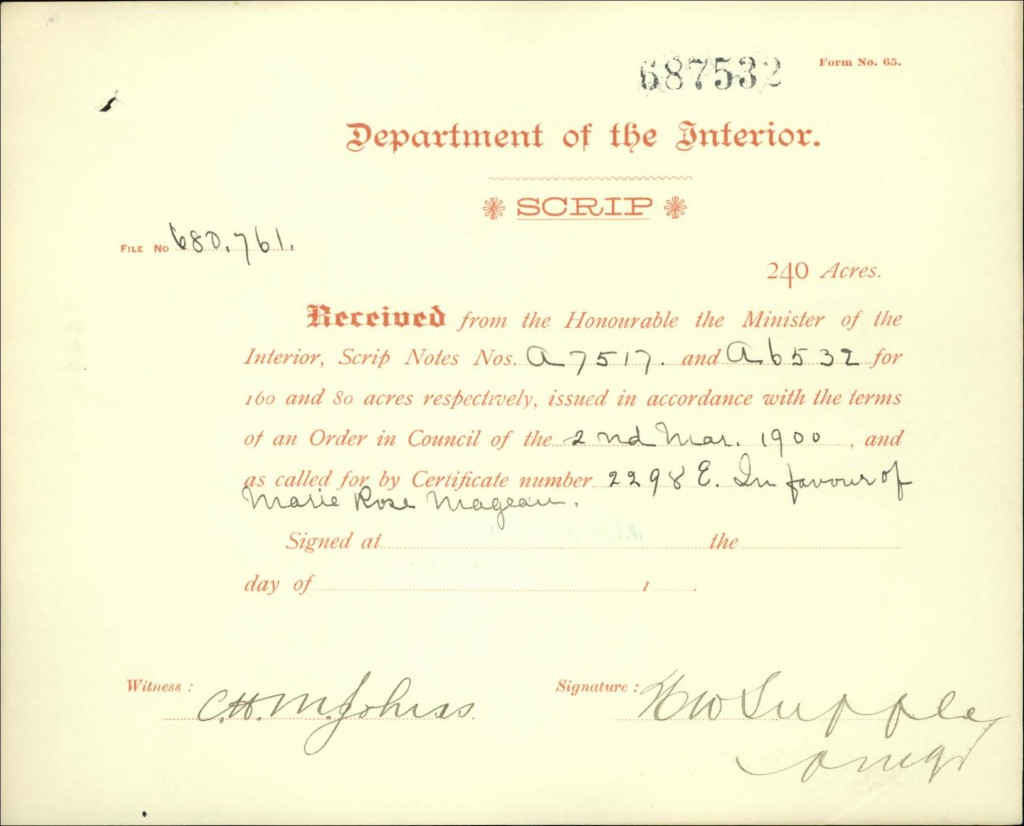 687532
Form No. 65.
Department of the Interior.
SCRIP
FILE No 680.761.
240 Acres.
Received from the Honourable the Minister of the
Interior, Scrip Notes Nos. A 7517. and A 6532 for
160 and 80 acres respectively, issued in accordance with the terms
of an Order in Council of the 2nd Mar. 1900, and
as called for by Certificate number 2298 E. In favour of
Marie Rose Mageau.
Signed at the
day of 1
Witness : C.H.M. Johiss
Signature : Supple